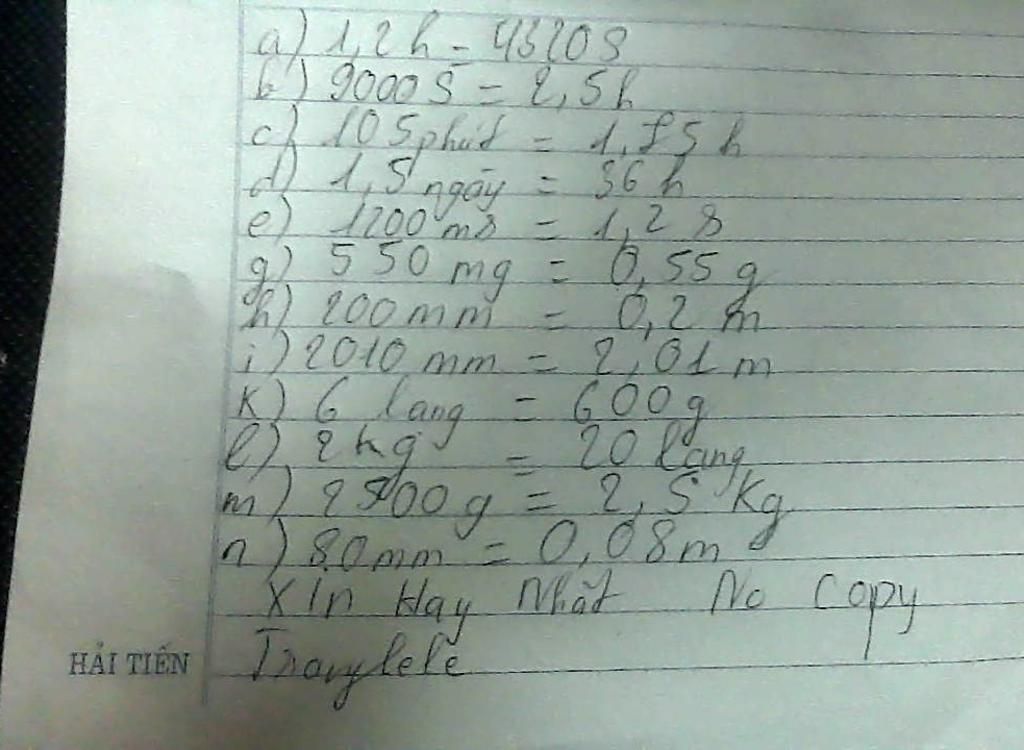 a) 1,2h = 4320s
b) 9000s = 2,5h
c) 105phút = 1,75h
d) 1,5ngày = 36h
e) 1200ms = 1,2s
g) 550mg = 0,55g
h) 200mm = 0,2m
i) 2010mm = 2,01m
k) 6 lạng = 600g
l) 2kg = 20 lạng
m) 2500g = 2,5 Kg
n) 80mm = 0,08m
XIn Hay Nhất No Copy
HẢI TIẾN